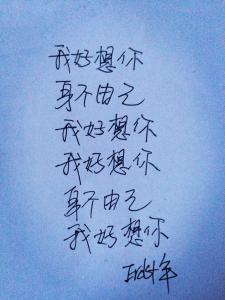 我好想你
身不由己
我好想你
我好想你
身不由己
我好想你